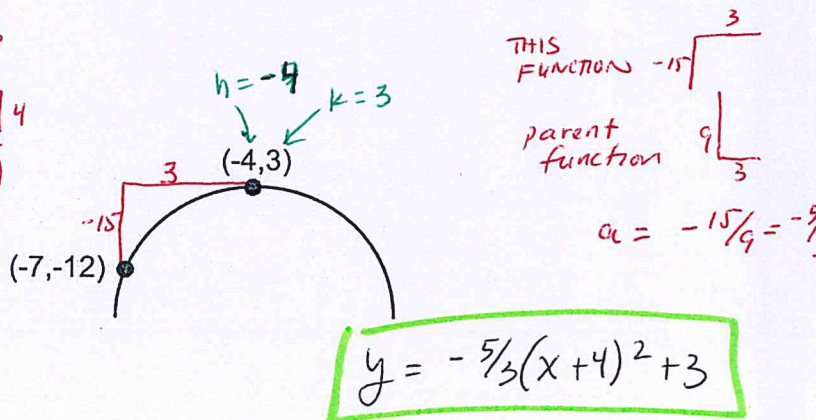 4
h = -4
k = 3
(-4,3)
3
-15
(-7,-12)
THIS
FUNCTION
3
-15
parent
function
9
3
a = -15/9 = -5/
y = - 5/3(x+4)² +3